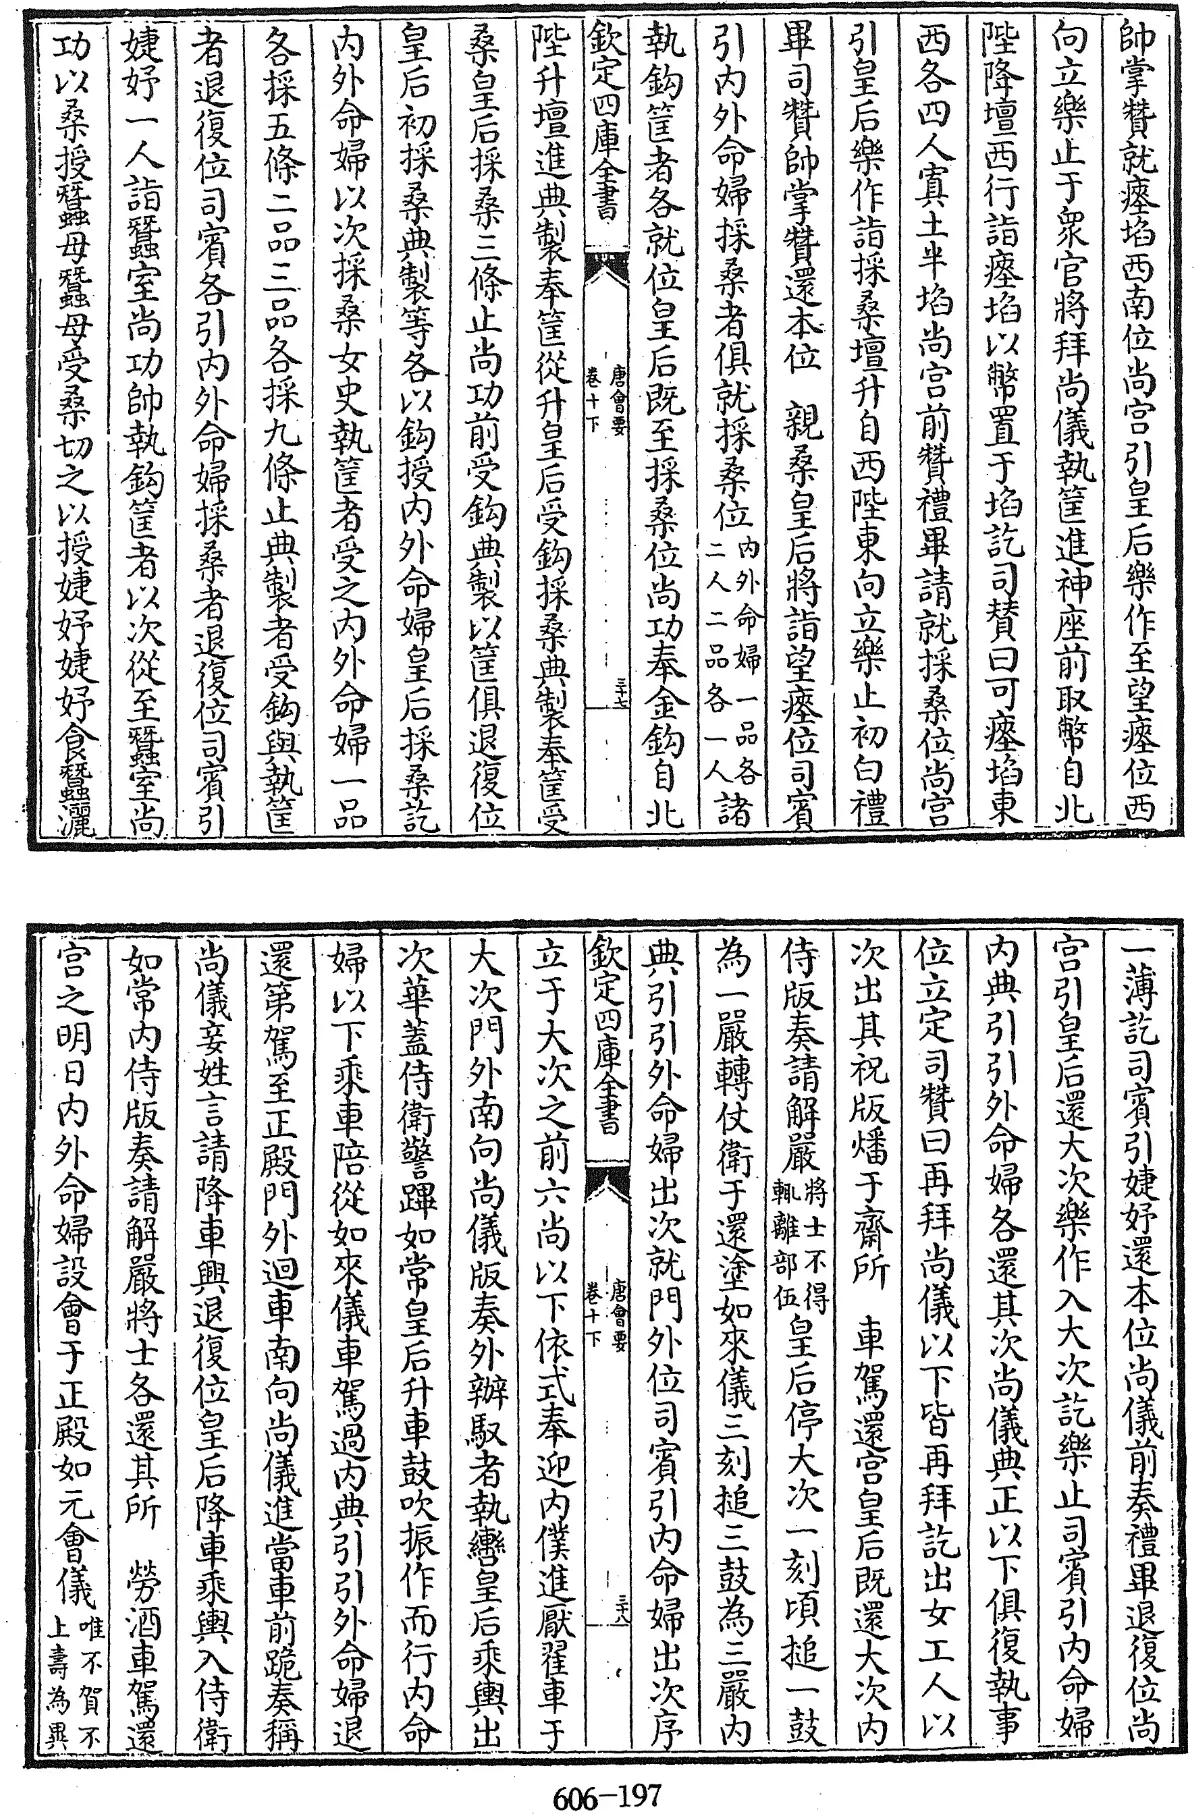 帥掌贊就瘞埳西南位尚宫引皇后樂作至望瘞位西
向立樂止于衆官將拜尚儀執筐進神座前取幣自北
陛降壇西行詣瘞埳以幣置于埳訖司贊曰可瘞埳東
西各四人寘土半埳尚宫前贊禮畢請就採桑位尚宫
引皇后樂作詣採桑壇升自西陛東向立樂止初白禮
畢司贊帥掌贊還本位　親桑皇后將詣望瘞位司賓
引内外命婦採桑者俱就採桑位内外命婦一品各二人二品各一人諸
執鈎筐者各就位皇后既至採桑位尚功奉金鈎自北
欽定四庫全書　唐會要卷十下　三十七
陛升壇進典製奉筐從升皇后受鈎採桑典製奉筐受
桑皇后採桑三條止尚功前受鈎典製以筐俱退復位
皇后初採桑典製等各以鈎授内外命婦皇后採桑訖
内外命婦以次採桑女史執筐者受之内外命婦一品
各採五條二品三品各採九條止典製者受鈎與執筐
者退復位司賓各引内外命婦採桑者退復位司賓引
婕妤一人詣蠶室尚功帥執鈎筐者以次從至蠶室尚
功以桑授蠶母蠶母受桑切之以授婕妤婕妤食蠶灑
一薄訖司賓引婕妤還本位尚儀前奏禮畢退復位尚
宫引皇后還大次樂作入大次訖樂止司賓引内命婦
内典引引外命婦各還其次尚儀典正以下俱復執事
位立定司贊曰再拜尚儀以下皆再拜訖出女工人以
次出其祝版燔于齋所　車駕還宫皇后既還大次内
侍版奏請解嚴將士不得輒離部伍皇后停大次一刻頃搥一鼓
為一嚴轉仗衛于還塗如來儀三刻搥三鼓為三嚴内
典引引外命婦出次就門外位司賓引内命婦出次序
欽定四庫全書　唐會要卷十下　三十八
立于大次之前六尚以下依式奉迎内僕進厭翟車于
大次門外南向尚儀版奏外辦馭者執轡皇后乘輿出
次華蓋侍衛警蹕如常皇后升車鼓吹振作而行内命
婦以下乘車陪從如來儀車駕過内典引引外命婦退
還第駕至正殿門外迴車南向尚儀進當車前跪奏稱
尚儀妾姓言請降車興退復位皇后降車乘輿入侍衛
如常内侍版奏請解嚴將士各還其所　勞酒車駕還
宫之明日内外命婦設會于正殿如元會儀唯不賀不上壽為異
606-197